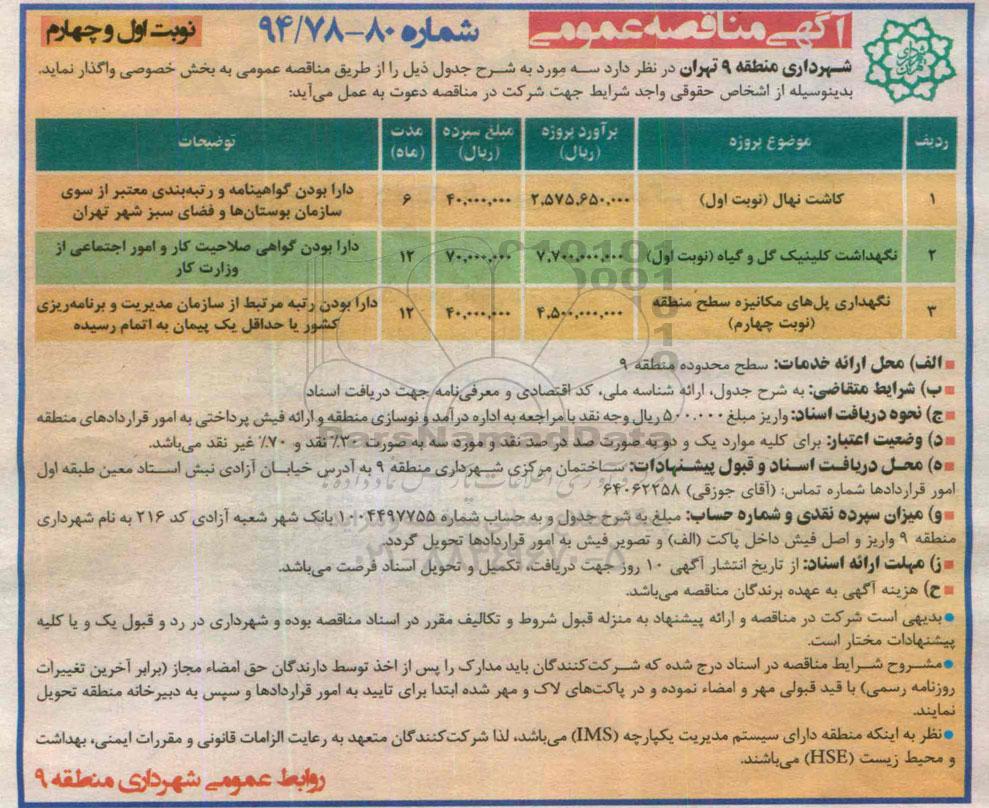 آگهی مناقصه عمومی
شماره ۸۰-۹۴/۷۸
نوبت اول و چهارم
شهرداری منطقه ۹ تهران در نظر دارد سه مورد به شرح جدول ذیل را از طریق مناقصه عمومی به بخش خصوصی واگذار نماید.
بدینوسیله از اشخاص حقوقی واجد شرایط جهت شرکت در مناقصه دعوت به عمل می‌آید:
ردیف موضوع پروژه برآورد پروژه (ریال) مبلغ سپرده (ریال) مدت (ماه) توضیحات
۱ کاشت نهال (نوبت اول) ۲.۵۷۵.۶۵۰.۰۰۰ ۴۰.۰۰۰.۰۰۰ ۶ دارا بودن گواهینامه و رتبه‌بندی معتبر از سوی
سازمان بوستان‌ها و فضای سبز شهر تهران
۲ نگهداشت کلینیک گل و گیاه (نوبت اول) ۷.۷۰۰.۰۰۰.۰۰۰ ۷۰.۰۰۰.۰۰۰ ۱۲ دارا بودن گواهی صلاحیت کار و امور اجتماعی از
وزارت کار
۳ نگهداری پل‌های مکانیزه سطح منطقه
(نوبت چهارم) ۴.۵۰۰.۰۰۰.۰۰۰ ۴۰.۰۰۰.۰۰۰ ۱۲ دارا بودن رتبه مرتبط از سازمان مدیریت و برنامه‌ریزی
کشور یا حداقل یک پیمان به اتمام رسیده
الف) محل ارائه خدمات: سطح محدوده منطقه ۹
ب) شرایط متقاضی: به شرح جدول، ارائه شناسه ملی، کد اقتصادی و معرفی‌نامه جهت دریافت اسناد
ج) نحوه دریافت اسناد: واریز مبلغ ۵۰۰.۰۰۰ ریال وجه نقد با مراجعه به اداره درآمد و نوسازی منطقه و ارائه فیش پرداختی به امور قراردادهای منطقه
د) وضعیت اعتبار: برای کلیه موارد یک و دو به صورت صد در صد نقد و مورد سه به صورت ۳۰٪ نقد و ۷۰٪ غیر نقد می‌باشد.
ه) محل دریافت اسناد و قبول پیشنهادات: ساختمان مرکزی شهرداری منطقه ۹ به آدرس خیابان آزادی نبش استاد معین طبقه اول
امور قراردادها شماره تماس: (آقای جوزقی) ۶۴۰۶۲۲۵۸
و) میزان سپرده نقدی و شماره حساب: مبلغ به شرح جدول و به حساب شماره ۱۰۰۴۴۹۷۷۵۵ بانک شهر شعبه آزادی کد ۲۱۶ به نام شهرداری
منطقه ۹ واریز و اصل فیش داخل پاکت (الف) و تصویر فیش به امور قراردادها تحویل گردد.
ز) مهلت ارائه اسناد: از تاریخ انتشار آگهی ۱۰ روز جهت دریافت، تکمیل و تحویل اسناد فرصت می‌باشد.
ح) هزینه آگهی به عهده برندگان مناقصه می‌باشد.
بدیهی است شرکت در مناقصه و ارائه پیشنهاد به منزله قبول شروط و تکالیف مقرر در اسناد مناقصه بوده و شهرداری در رد و قبول یک و یا کلیه
پیشنهادات مختار است.
مشروح شرایط مناقصه در اسناد درج شده که شرکت‌کنندگان باید مدارک را پس از اخذ توسط دارندگان حق امضاء مجاز (برابر آخرین تغییرات
روزنامه رسمی) با قید قبولی مهر و امضاء نموده و در پاکت‌های لاک و مهر شده ابتدا برای تایید به امور قراردادها و سپس به دبیرخانه منطقه تحویل
نمایند.
نظر به اینکه منطقه دارای سیستم مدیریت یکپارچه (IMS) می‌باشد، لذا شرکت‌کنندگان متعهد به رعایت الزامات قانونی و مقررات ایمنی، بهداشت
و محیط زیست (HSE) می‌باشند.
روابط عمومی شهرداری منطقه ۹